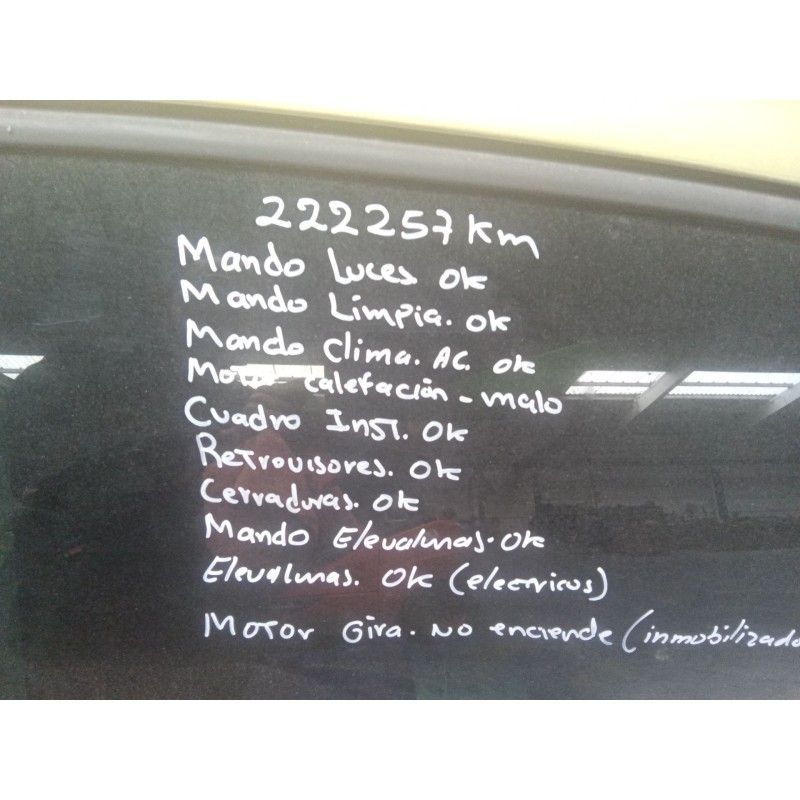 222257 Km
Mando Luces OK
Mando Limpia. OK
Mando Clima. AC. OK
Motor Calefación - malo
Cuadro Inst. OK
Retrovisores. OK
Cerraduras. OK
Mando Elevalunas. OK
Elevalunas. OK (electricos)
Motor Gira. No enciende (inmobilizado